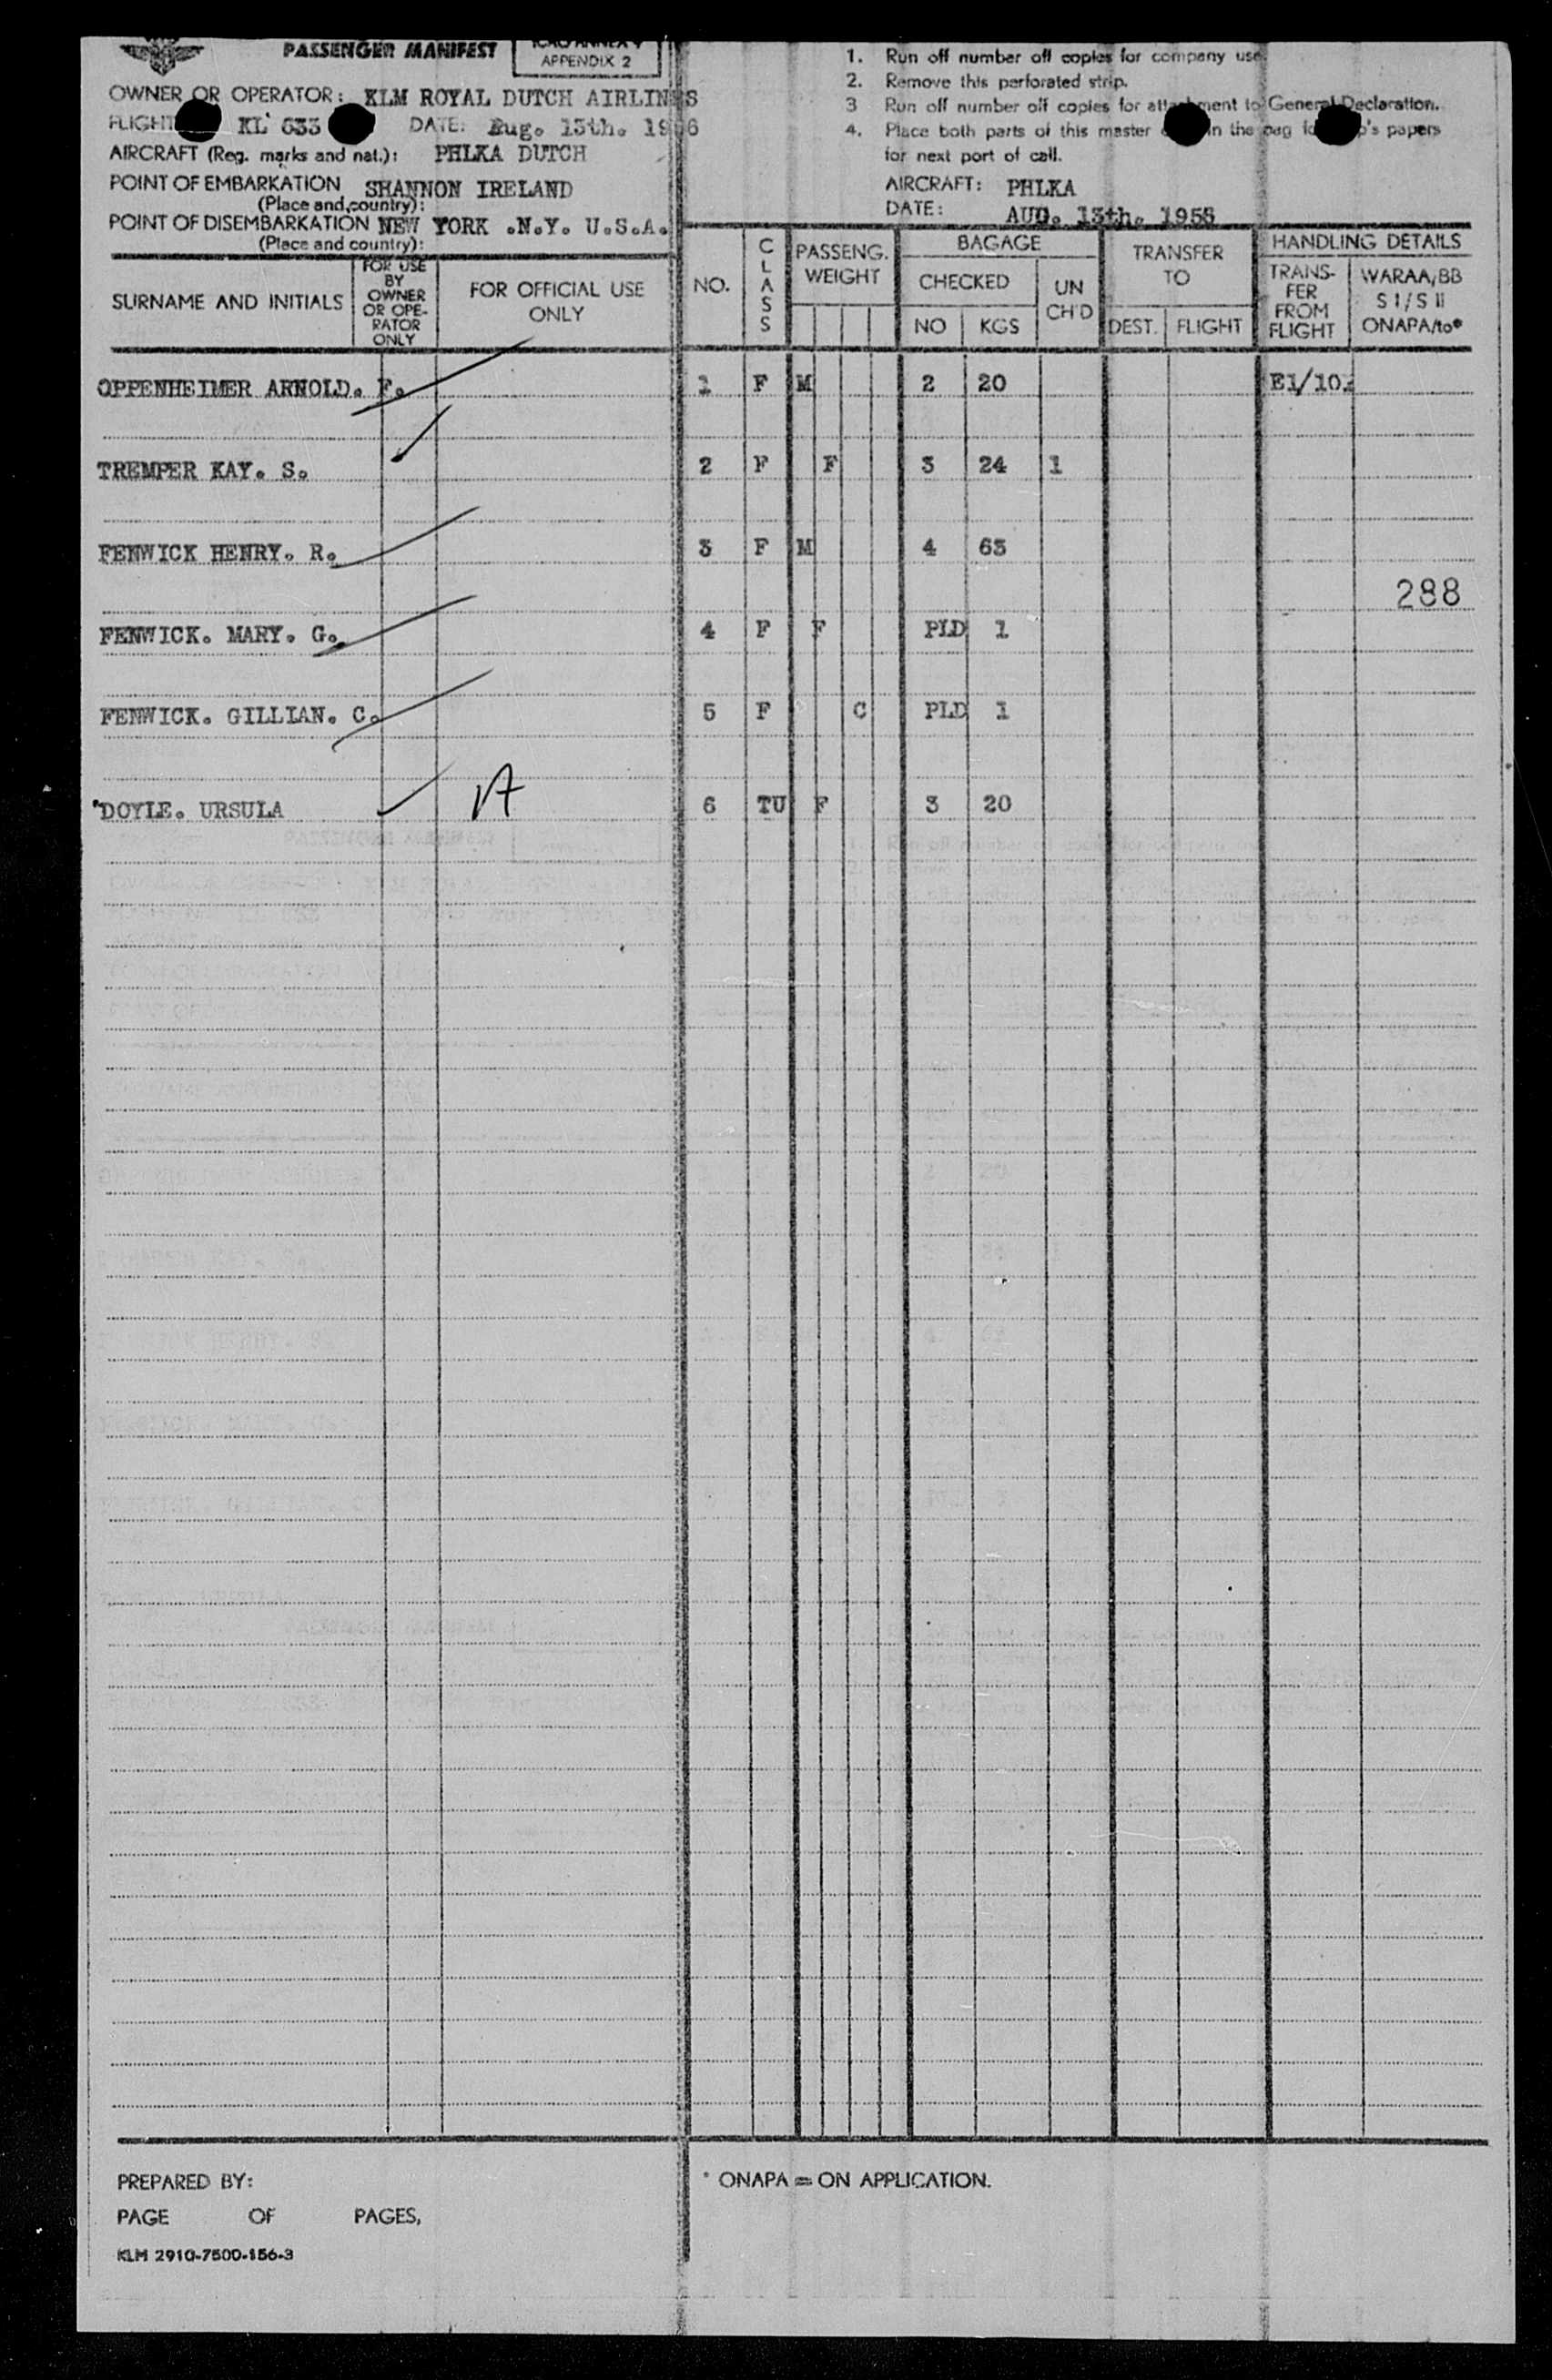 PASSENGER MANIFEST
ICAO ANNEX 9
APPENDIX 2
OWNER OR OPERATOR: KLM ROYAL DUTCH AIRLINES
FLIGHT KL 633 DATE: Aug. 13th. 1956
AIRCRAFT (Reg. marks and nat.): PHLKA DUTCH
POINT OF EMBARKATION SHANNON IRELAND
(Place and country):
POINT OF DISEMBARKATION NEW YORK .N.Y. U.S.A.
(Place and country):
1. Run off number off copies for company use
2. Remove this perforated strip.
3 Run off number off copies for attachment to General Declaration.
4. Place both parts of this master in the bag 's papers
for next port of call.
AIRCRAFT: PHLKA
DATE: AUG. 13th. 1956
SURNAME AND INITIALS
FOR USE BY OWNER OR OPE- RATOR ONLY
FOR OFFICIAL USE ONLY
NO.
CLASS
PASSENG. WEIGHT
BAGAGE
CHECKED
NO KGS
UN CH'D
TRANSFER TO
DEST. FLIGHT
HANDLING DETAILS
TRANS- FER FROM FLIGHT
WARAA/BB S I/S II ONAPA/to*
OPPENHEIMER ARNOLD. F. 1 F M 2 20 EI/10.
TREMPER KAY. S. 2 F F 3 24 1
FENWICK HENRY. R. 3 F M 4 63
288
FENWICK. MARY. G. 4 F F PLD 1
FENWICK. GILLIAN. C. 5 F C PLD 1
DOYLE. URSULA A 6 TU F 3 20
PREPARED BY:
PAGE OF PAGES,
KLM 2910-7500-156-3
* ONAPA = ON APPLICATION.